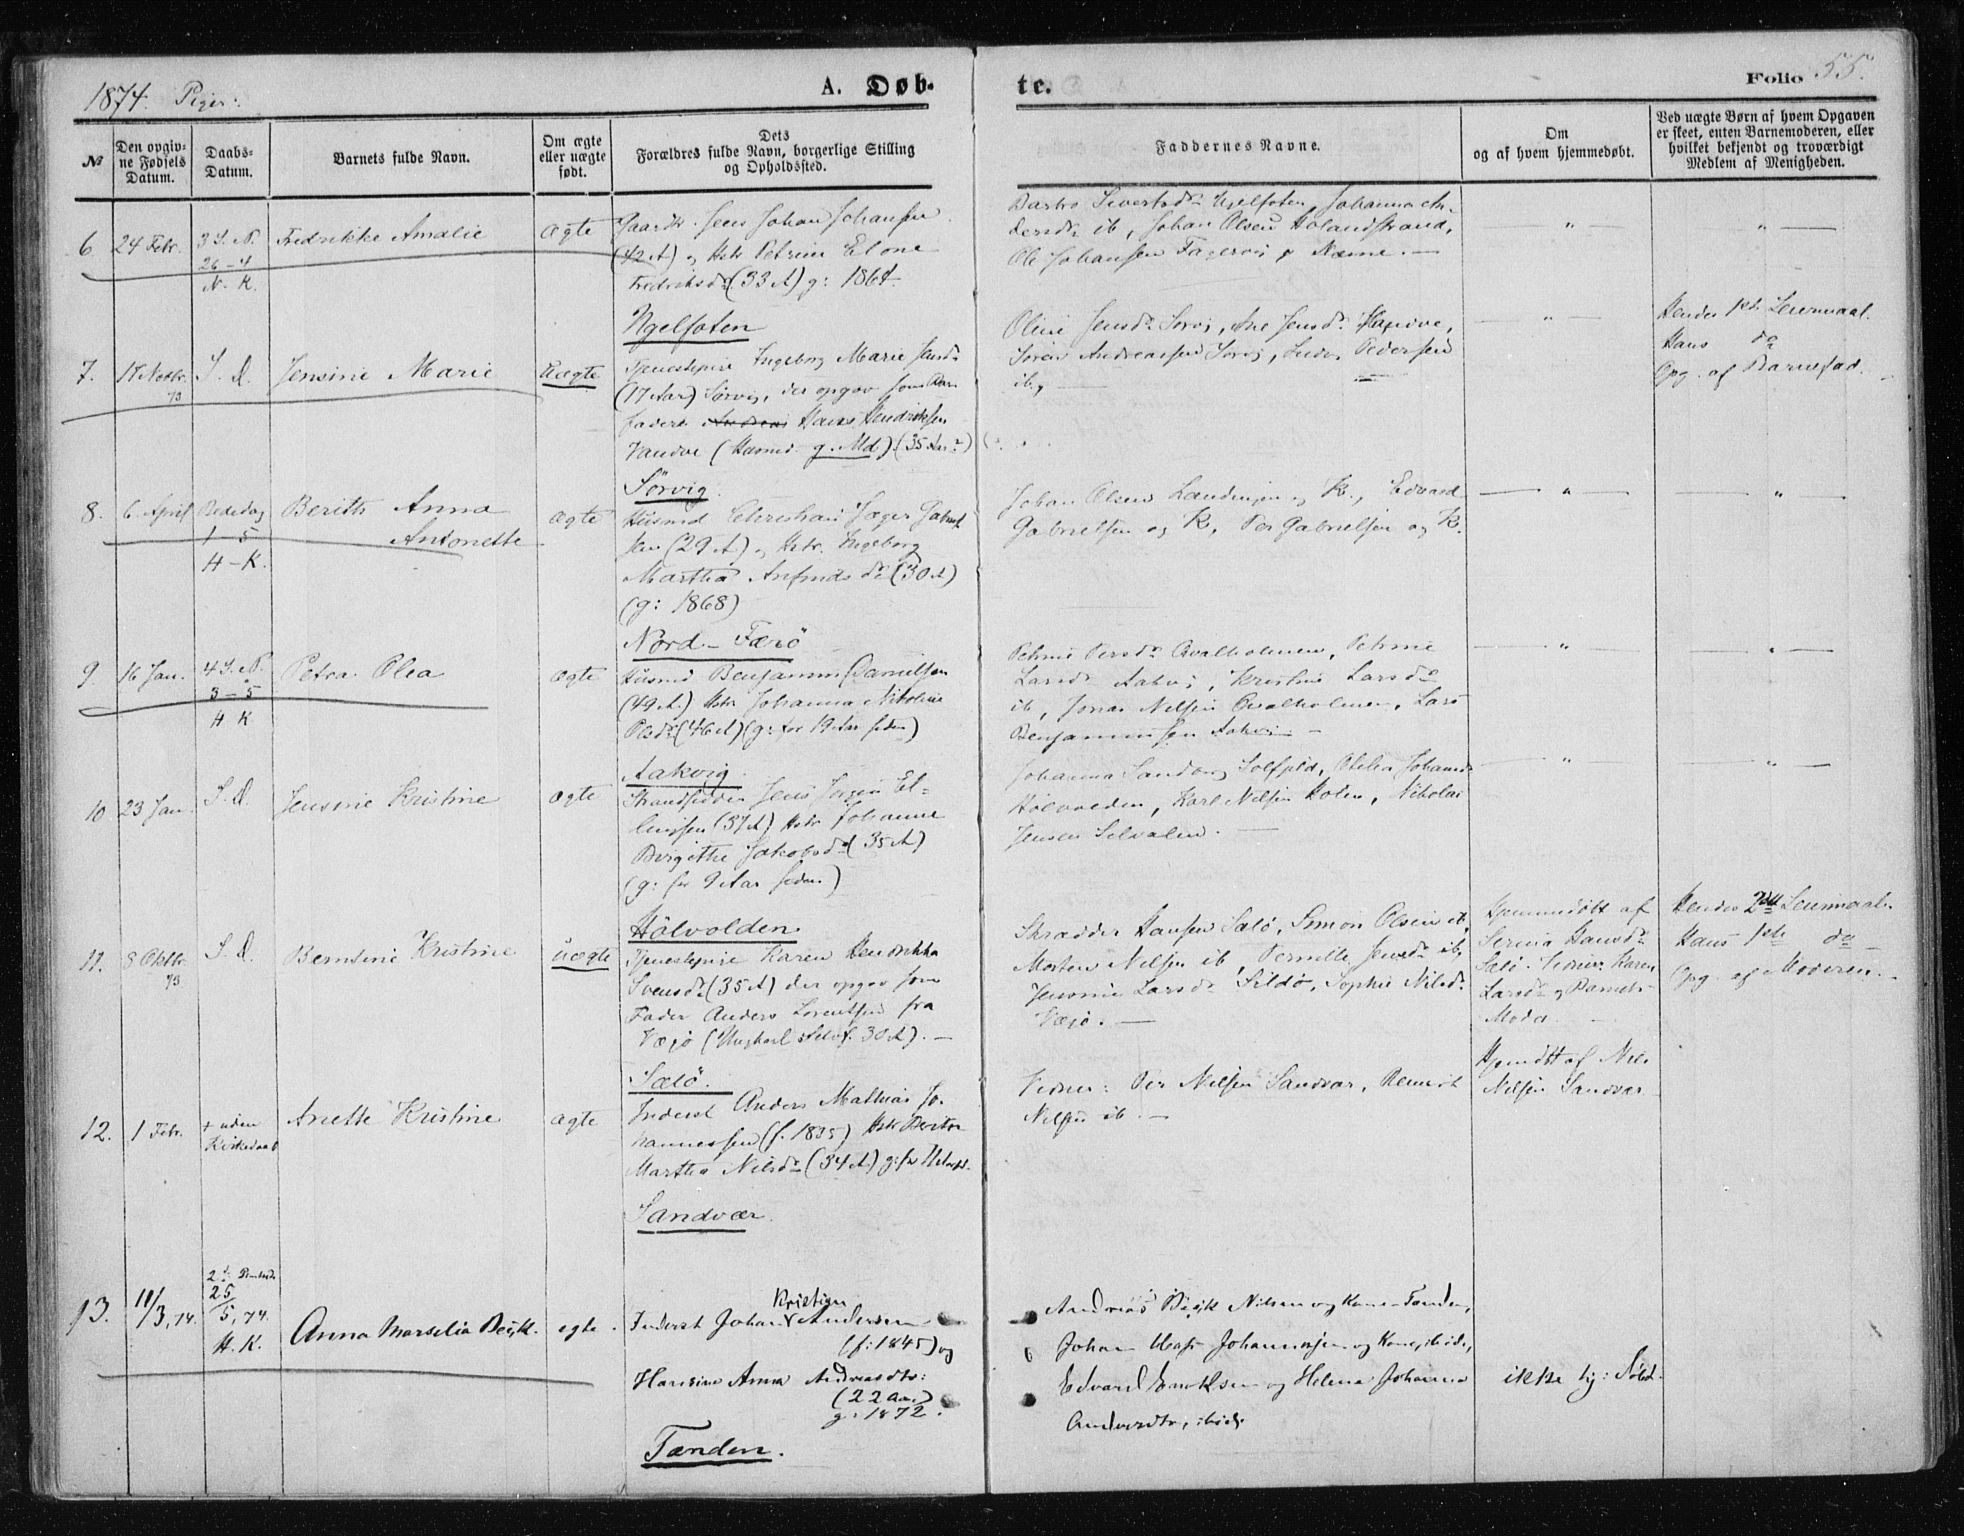 1874. Piger.
A. Døb-
te.
Folio 55.
№
Den opgiv-
ne Fødsels
Datum.
Daabs-
Datum.
Barnets fulde Navn.
Om ægte
eller uægte
født.
Dets
Forældres fulde Navn, borgerlige Stilling
og Opholdssted.
Faddernes Navne.
Om
og af hvem hjemmedøbt.
Ved uægte Børn af hvem Opgaven
er skeet, enten Barnemoderen, eller
hvilket bekjendt og troværdigt
Medlem af Menigheden.
6
24 Febr.
3 S. P.
26-4
N. K.
Fredrikke Amalie
ægte
Gaardbr. Jens Johan Johansen
(42 A) og Hstr Petrine Elone
Fredriksdr (33 A) g: 1864.
Sivertsdr Johanna An-
dersdr ib, Johan Olsen Holandstrand,
Ole Johansen Fagervig
7.
17 Novbr.
73
S. D.
Jensine Marie
uægte
Tjenestepige Ingeborg Marie Jensdr
(17 Aar) Sørvig, der opgav som Barn
fader Hans Hendriksen
Vandve (g. Md) (35 Aar)
Oline Jensdr Sørvig, Ane Jensdr
Søren Andreassen Sørvig, Pedersen
ib,
"
Hendes 1ste Leiermaal.
Hans do
Opg. af Barnefad.
Sørvig.
8.
6 April
Bededag
1-5
H-K.
Berith Anna
Antonette
ægte
Husmd Christian Jæger Gabriel
sen (29 A) og Hstr. Ingeborg
Martha Anfindsdr (30 A)
(g: 1868)
Johan Olsen og K., Edvard
Gabrielsen og K, Per Gabrielsen og K.
"
"
Nord-Færö
9.
16 Jan.
4 S. P.
3-5
H K
Petra Olea
ægte
Husmd Benjamin Danielsen
(49 A.) Hstr Johanna Nikoline
Olsdr (46 A) (g: for 19 Aar siden)
Petrine Persdr Qvalholmen, Petrine
Larsdr Aakvig, Kristine Larsdr
ib, Jonas Nilsen Qvalholmen, Lars
Benjaminsen Aakvig
"
"
Aakvig.
10
23 Jan.
S. D.
Jensine Kristine
ægte
Strandsidder Jens Jørgen El-
lingsen (37 A) Hstr Johanne
Birgitte Jakobsdr (35 A)
(g: for 9 Aar siden.)
Johanna Sandvig Solfjeld, Otilia Johansdr
Hölvolden, Karl Nilsen Holen, Nikolai
Jensen Selvalen.
"
"
Hölvolden.
11.
8 Oktbr.
73
S. D.
Berntine Kristine
uægte
Tjenestepige Karen Hendrikka
Svensdr (35 A) der opgav som
Fader Anders Lorentsen fra
Vægö (Ungkarl 30 A).
Skrædder Hansen Salö, Simon Olsen ib
Morten Nilsen ib, Pernille Jensdr ib,
Larsdr Sildö, Sophie Nilsdr
Vægö.
Hjemmedöbt af
Serina Hansdr
Salö. Vidner: Karen
Larsdr og Barnets
Moder
Hendes 2det Leiermaal
Hans 1ste do
Opg. af Moderen.
Salö.
12.
1 Febr.
+ uden
Kirkedaab
Anette Kristine
ægte
Inderst Anders Mathias Jo-
hannessen (f. 1835) Hstr
Martha Nilsdr (34 A)
Vidner: Per Nilsen Sandvær,
Nilsen ib.
Hjemdöbt af Nils
Nilsen Sandvær
Sandvær.
13.
11/3, 74.
2den
25
5, 74.
H. K.
Anna Marselia
egte
Inderst Johan Kristian Andersen
(f: 1845) og
Hansine Anna Andreasdtr:
(22 Aar)
g: 1872.
Andreas Nilsen og Kone Tanden,
Johan Johannesen og Kone, ibide,
Edvard Enoksen og Helena Johanna
Andersdtr, ibid.
ikke hj:
Tanden.